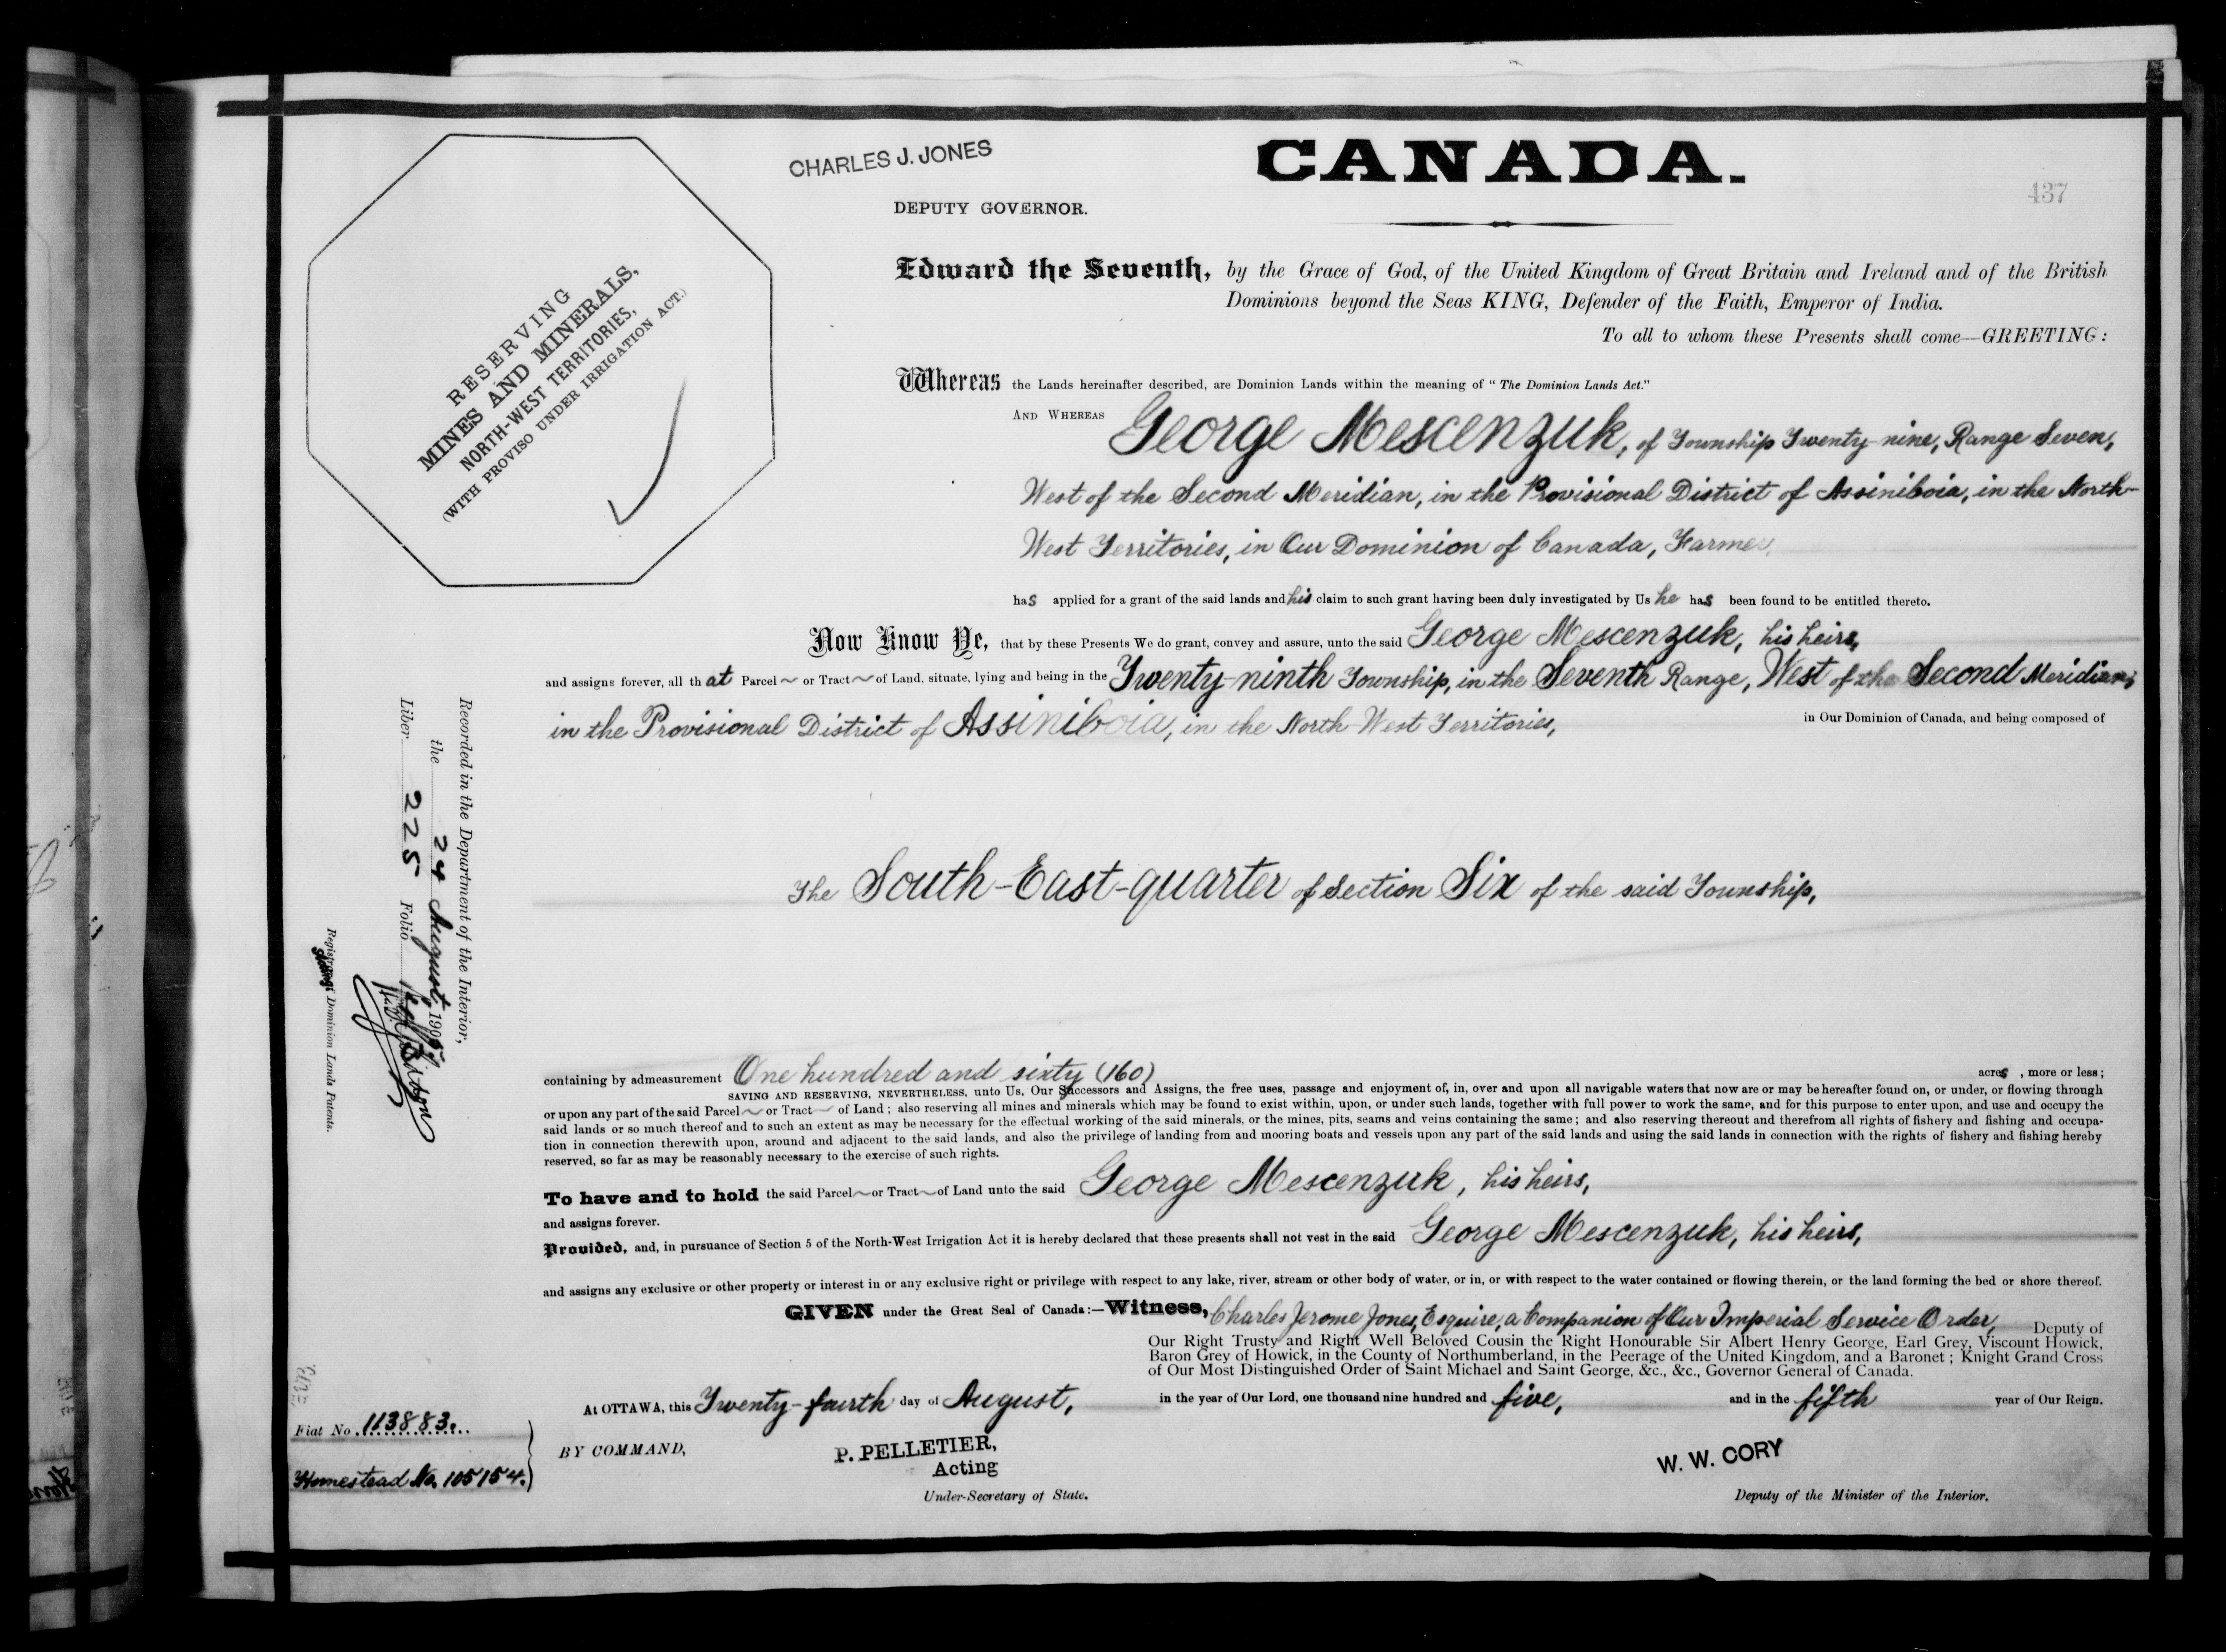 CHARLES J. JONES
DEPUTY GOVERNOR.
CANADA.
437
RESERVING
MINES AND MINERALS,
NORTH-WEST TERRITORIES,
(WITH PROVISO UNDER IRRIGATION ACT.)
Edward the Seventh, by the Grace of God, of the United Kingdom of Great Britain and Ireland and of the British
Dominions beyond the Seas KING, Defender of the Faith, Emperor of India.
To all to whom these Presents shall come—GREETING:
Whereas the Lands hereinafter described, are Dominion Lands within the meaning of "The Dominion Lands Act."
AND WHEREAS George Mescenzuk, of Township Twenty-nine, Range Seven,
West of the Second Meridian, in the Provisional District of Assiniboia, in the North-
West Territories, in Our Dominion of Canada, Farmer,
has applied for a grant of the said lands and his claim to such grant having been duly investigated by Us he has been found to be entitled thereto.
Now Know Ye, that by these Presents We do grant, convey and assure, unto the said George Mescenzuk, his heirs,
and assigns forever, all that Parcel ~ or Tract ~ of Land, situate, lying and being in the Twenty-ninth Township, in the Seventh Range, West of the Second Meridian,
in the Provisional District of Assiniboia, in the North-West Territories, in Our Dominion of Canada, and being composed of
The South-East-quarter of Section Six of the said Township,
containing by admeasurement One hundred and sixty (160) acres, more or less;
SAVING AND RESERVING, NEVERTHELESS, unto Us, Our Successors and Assigns, the free uses, passage and enjoyment of, in, over and upon all navigable waters that now are or may be hereafter found on, or under, or flowing through
or upon any part of the said Parcel ~ or Tract ~ of Land; also reserving all mines and minerals which may be found to exist within, upon, or under such lands, together with full power to work the same, and for this purpose to enter upon, and use and occupy the
said lands or so much thereof and to such an extent as may be necessary for the effectual working of the said minerals, or the mines, pits, seams and veins containing the same; and also reserving thereout and therefrom all rights of fishery and fishing and occupa-
tion in connection therewith upon, around and adjacent to the said lands, and also the privilege of landing from and mooring boats and vessels upon any part of the said lands and using the said lands in connection with the rights of fishery and fishing hereby
reserved, so far as may be reasonably necessary to the exercise of such rights.
To have and to hold the said Parcel ~ or Tract ~ of Land unto the said George Mescenzuk, his heirs,
and assigns forever.
Provided, and, in pursuance of Section 5 of the North-West Irrigation Act it is hereby declared that these presents shall not vest in the said George Mescenzuk, his heirs,
and assigns any exclusive or other property or interest in or any exclusive right or privilege with respect to any lake, river, stream or other body of water, or in, or with respect to the water contained or flowing therein, or the land forming the bed or shore thereof.
GIVEN under the Great Seal of Canada:—Witness, Charles Jerome Jones, Esquire, a Companion of Our Imperial Service Order, Deputy of
Our Right Trusty and Right Well Beloved Cousin the Right Honourable Sir Albert Henry George, Earl Grey, Viscount Howick,
Baron Grey of Howick, in the County of Northumberland, in the Peerage of the United Kingdom, and a Baronet; Knight Grand Cross
of Our Most Distinguished Order of Saint Michael and Saint George, &c., &c., Governor General of Canada.
At OTTAWA, this Twenty-fourth day of August, in the year of Our Lord, one thousand nine hundred and five, and in the fifth year of Our Reign.
BY COMMAND,
P. PELLETIER,
Acting
Under-Secretary of State.
W. W. CORY
Deputy of the Minister of the Interior.
Fiat No. 113883.
Homestead No. 105154.
Recorded in the Department of the Interior,
the 24 August, 1905
Liber 225 Folio
Registrar of Dominion Lands Patents.